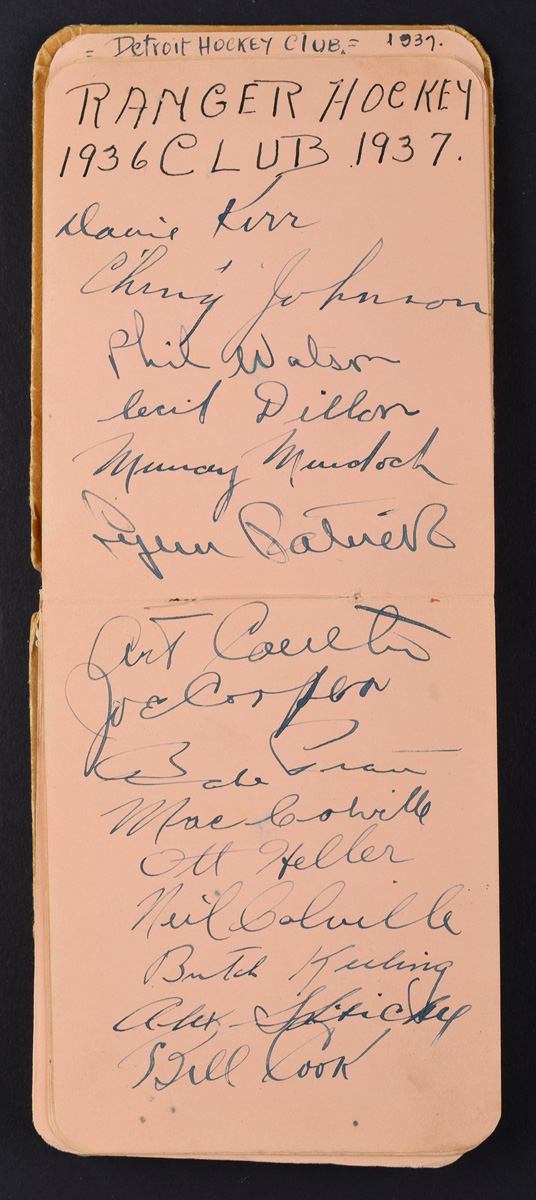 = Detroit HOCKEY CLUB. = 1937.
RANGER HOCKEY
1936 CLUB 1937.
Davie Kerr
"Ching" Johnson
Phil Watson
Cecil Dillon
Murray Murdoch
Lynn Patrick
Art Coulter
Joe Cooper
Babe Pratt
Mac Colville
Ott Heller
Neil Colville
Butch Keeling
Alex Shibicky
Bill Cook